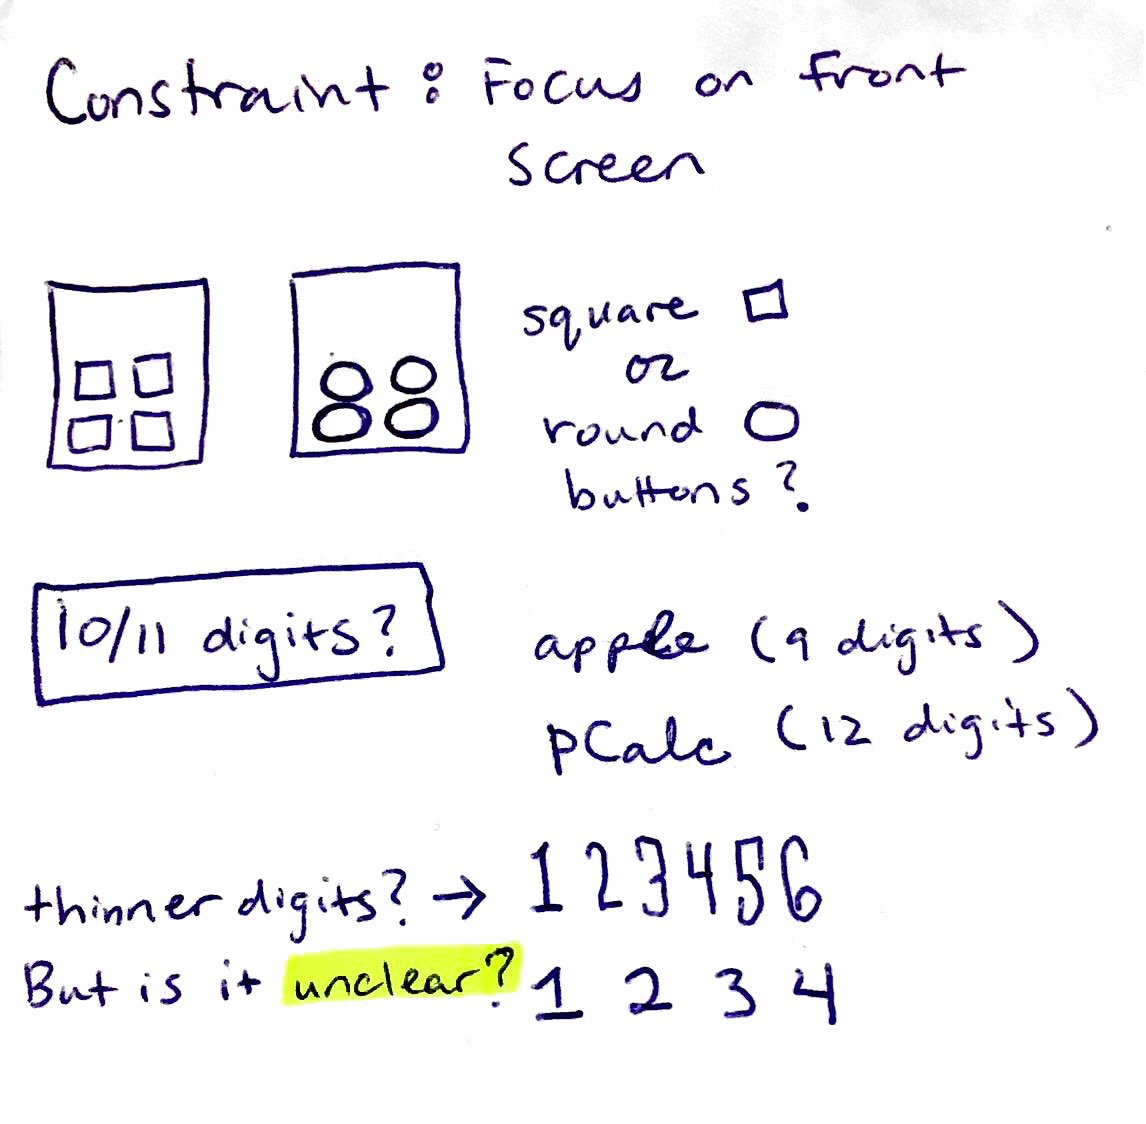 Constraint: Focus on front
screen
square
or
round
buttons?
10/11 digits?
apple (9 digits)
pCalc (12 digits)
thinner digits? → 123456
But is it unclear? 1 2 3 4